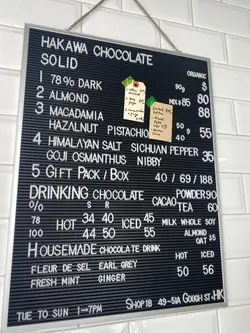 HAKAWA CHOCOLATE
SOLID ORGANIC
1 78% DARK 90g $ 80
2 ALMOND MIX#85 88
3 MACADAMIA 90
HAZALNUT PISTACHIO 40g 55
4 HIMALYAN SALT SICHUAN PEPPER 35
GOJI OSMANTHUS NIBBY
5 GIFT PACK / BOX 40 / 69 / 188
DRINKING CHOCOLATE POWDER 90
% S R CACAO TEA 60
78 HOT 34 40 ICED 45 MILK WHOLE SOY
100 44 50 55 ALMOND
OAT $5
HOUSEMADE CHOCOLATE DRINK HOT ICED
FLEUR DE SEL EARL GREY 50 56
FRESH MINT GINGER
TUE TO SUN 1-7PM SHOP1B 49-51A GOUGH ST. HK